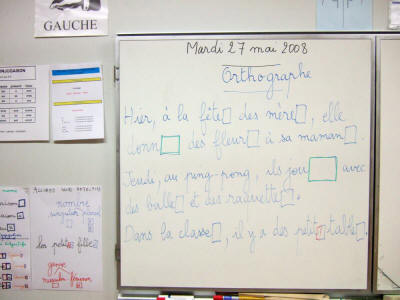 GAUCHE
Mardi 27 mai 2008
Orthographe
Hier, à la fête□ des mère□, elle
donn□ des fleur□ à sa maman□.
Jeudi, au ping-pong, ils jou□ avec
des balle□ et des raquette□.
Dans la classe□, il y a des petit□ table□.
nomine
singulier pluriel
les petites filles
genre
masculin féminin